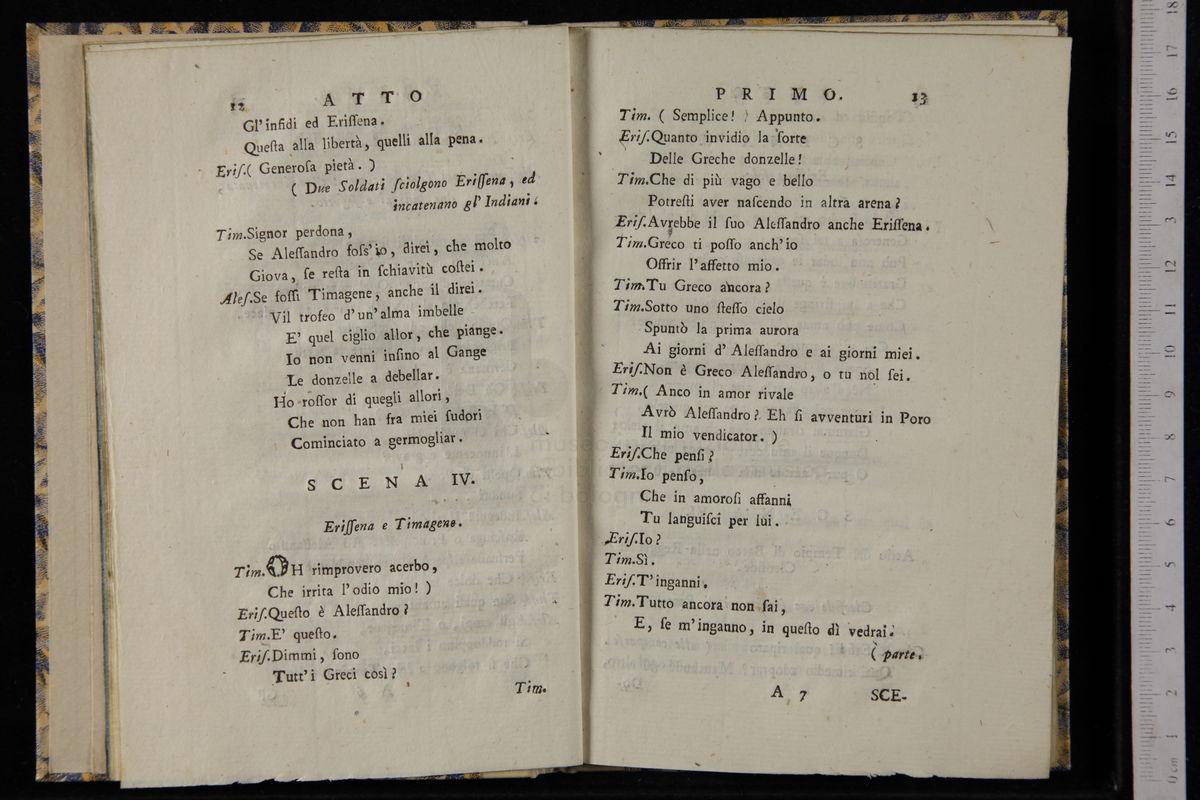 12 ATTO
Gl'infidi ed Eriſſena.
Queſta alla libertà, quelli alla pena.
Eriſ.( Generoſa pietà. )
( Due Soldati ſciolgono Eriſſena, ed
incatenano gl' Indiani.
Tim.Signor perdona,
Se Aleſſandro foſs'io, direi, che molto
Giova, ſe reſta in ſchiavitù coſtei.
Aleſ.Se foſſi Timagene, anche il direi.
Vil trofeo d'un'alma imbelle
E' quel ciglio allor, che piange.
Io non venni inſino al Gange
Le donzelle a debellar.
Ho roſſor di quegli allori,
Che non han fra miei ſudori
Cominciato a germogliar.
SCENA IV.
Eriſſena e Timagene.
Tim.OH rimprovero acerbo,
Che irrita l'odio mio! )
Eriſ.Queſto è Aleſſandro?
Tim.E' queſto.
Eriſ.Dimmi, ſono
Tutt'i Greci così?
Tim.
PRIMO. 13
Tim. ( Semplice! ) Appunto.
Eriſ.Quanto invidio la ſorte
Delle Greche donzelle!
Tim.Che di più vago e bello
Potreſti aver naſcendo in altra arena?
Eriſ.Avrebbe il ſuo Aleſſandro anche Eriſſena.
Tim.Greco ti poſſo anch'io
Offrir l'affetto mio.
Tim.Tu Greco ancora?
Tim.Sotto uno ſteſſo cielo
Spuntò la prima aurora
Ai giorni d' Aleſſandro e ai giorni miei.
Eriſ.Non è Greco Aleſſandro, o tu nol ſei.
Tim.( Anco in amor rivale
Avrò Aleſſandro? Eh ſi avventuri in Poro
Il mio vendicator. )
Eriſ.Che penſi?
Tim.Io penſo,
Che in amoroſi affanni
Tu languiſci per lui.
Eriſ.Io?
Tim.Sì.
Eriſ.T'inganni.
Tim.Tutto ancora non ſai,
E, ſe m'inganno, in queſto dì vedrai.
( parte.
A 7 SCE-